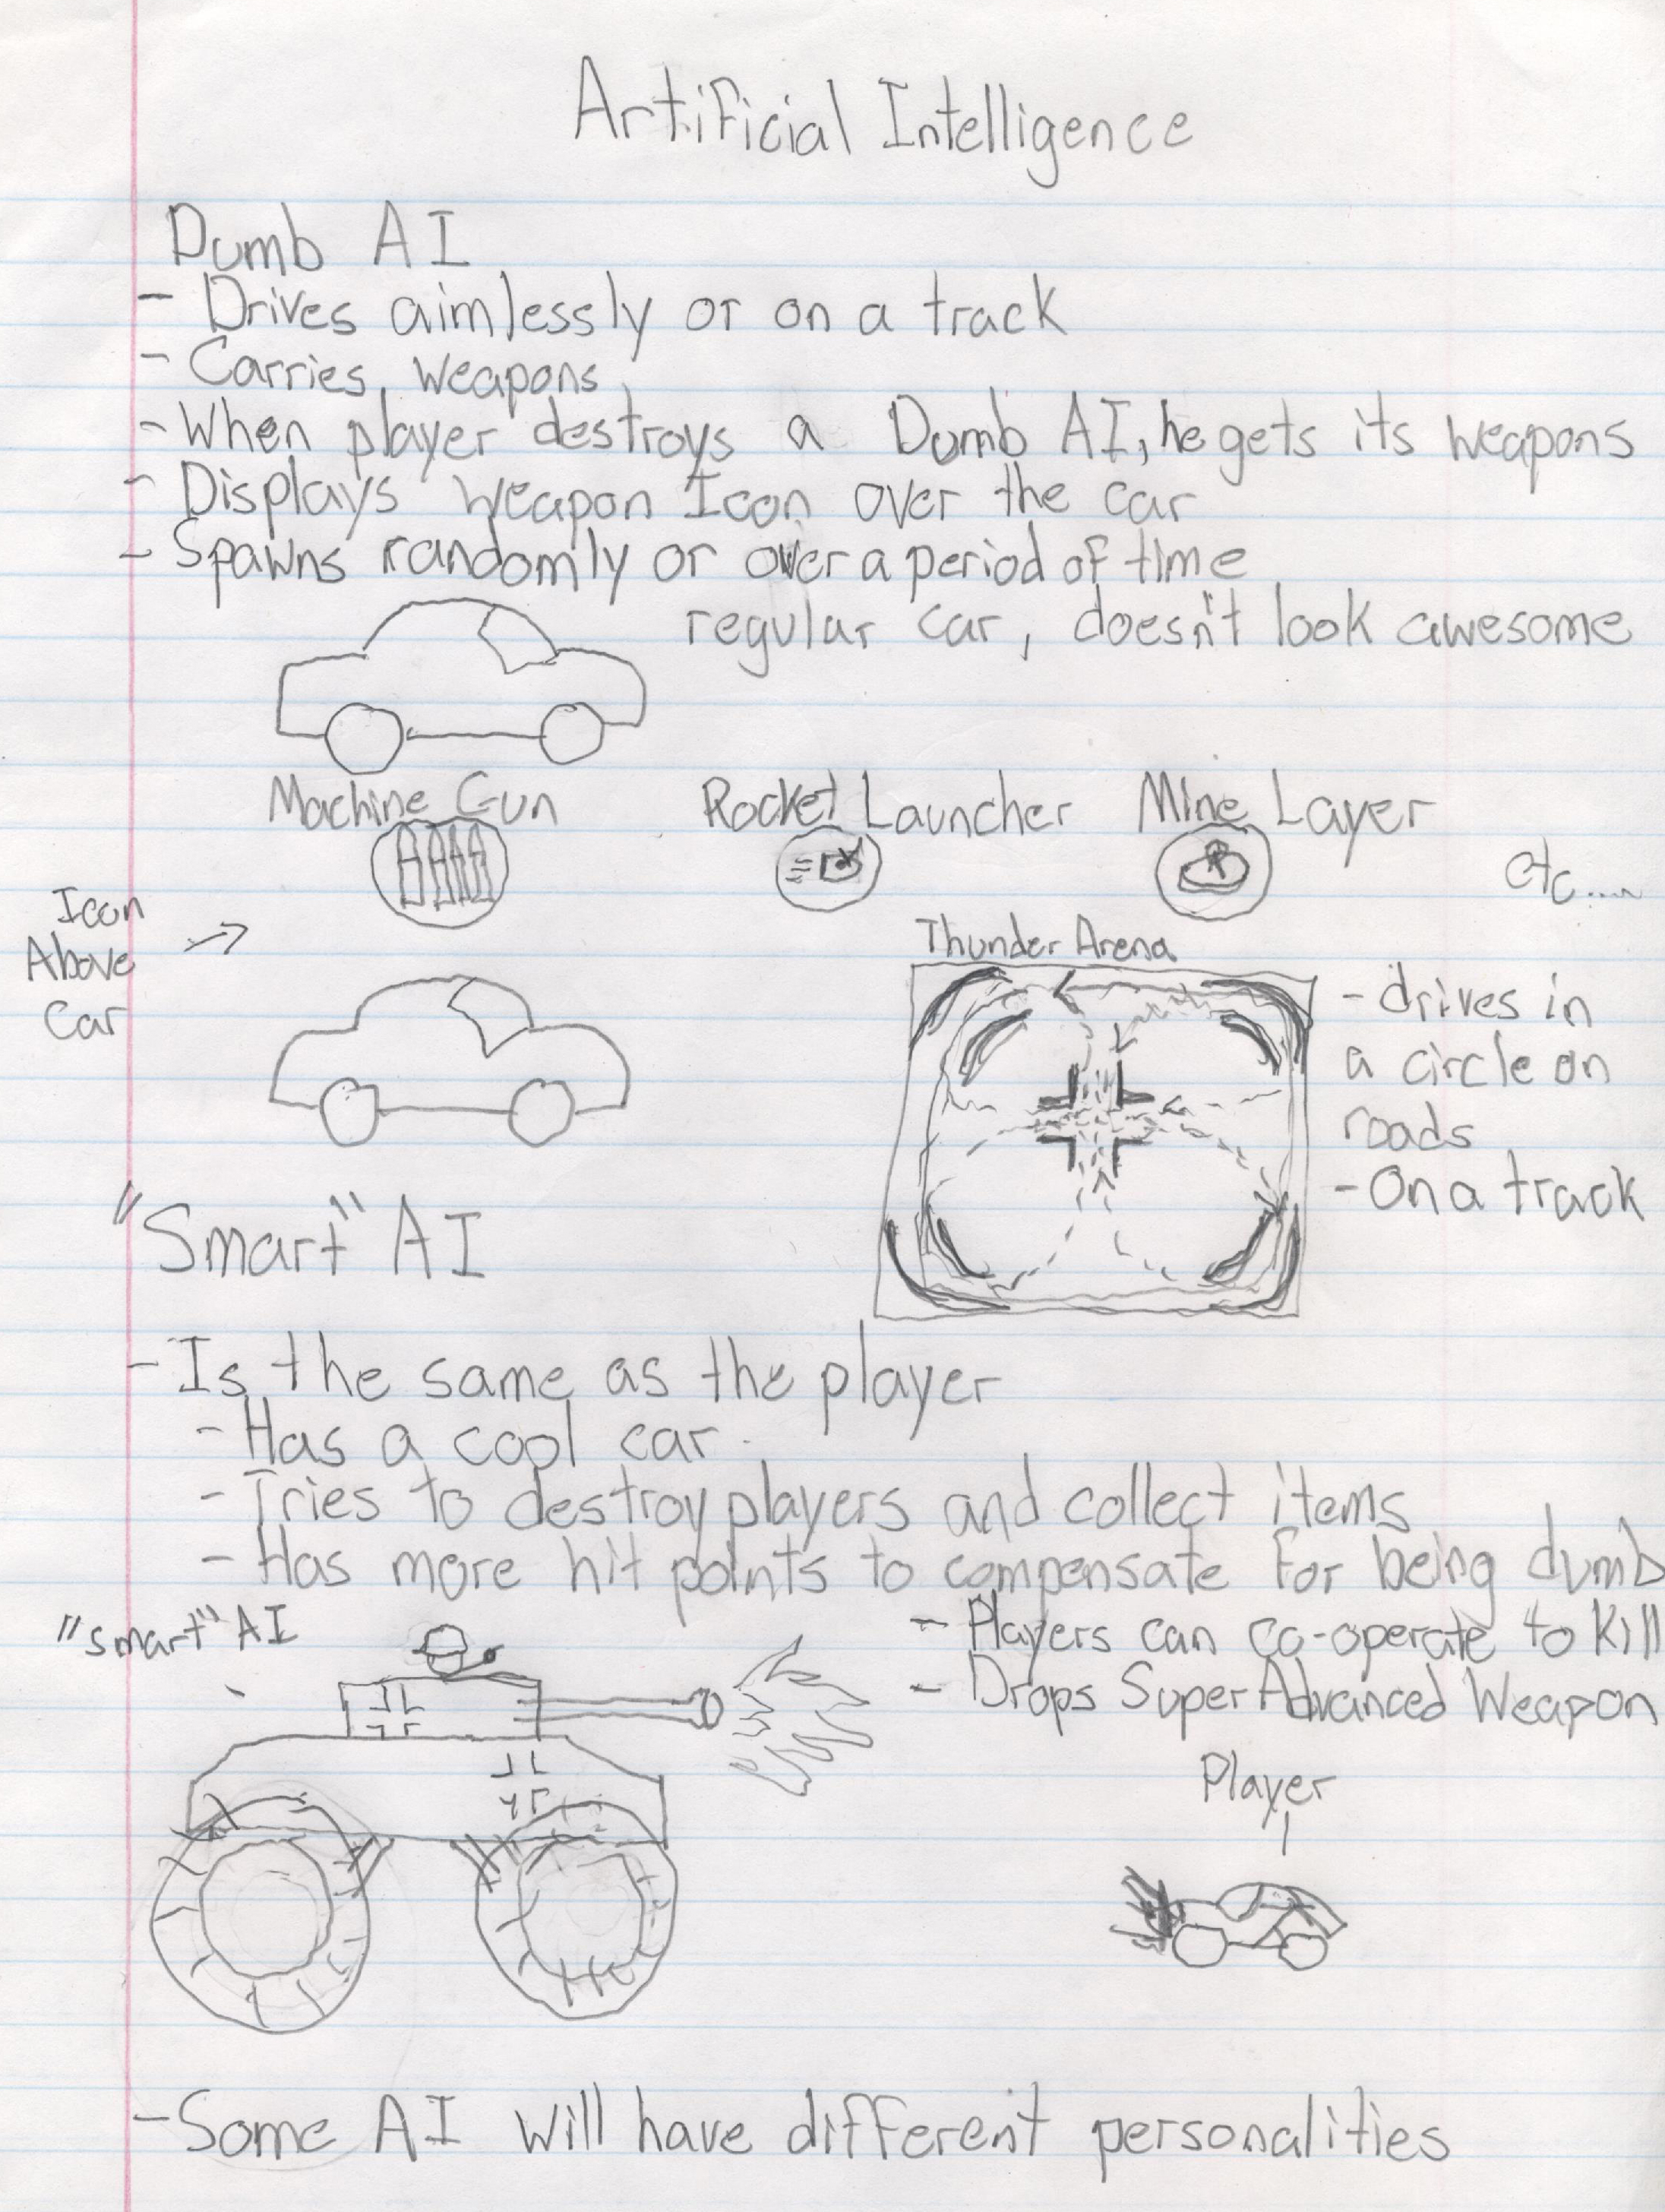 Artificial Intelligence
Dumb AI
- Drives aimlessly or on a track
- Carries weapons
- When player destroys a Dumb AI, he gets its weapons
- Displays weapon Icon over the car
- Spawns randomly or over a period of time
regular car, doesn't look awesome
Machine Gun Rocket Launcher Mine Layer
etc....
Icon
Above
Car
Thunder Arena
- drives in
a circle on
roads
- On a track
"Smart" AI
- Is the same as the player
- Has a cool car
- Tries to destroy players and collect items
- Has more hit points to compensate for being dumb
"smart" AI
- Players can co-operate to kill
- Drops Super Advanced Weapon
Player
- Some AI will have different personalities